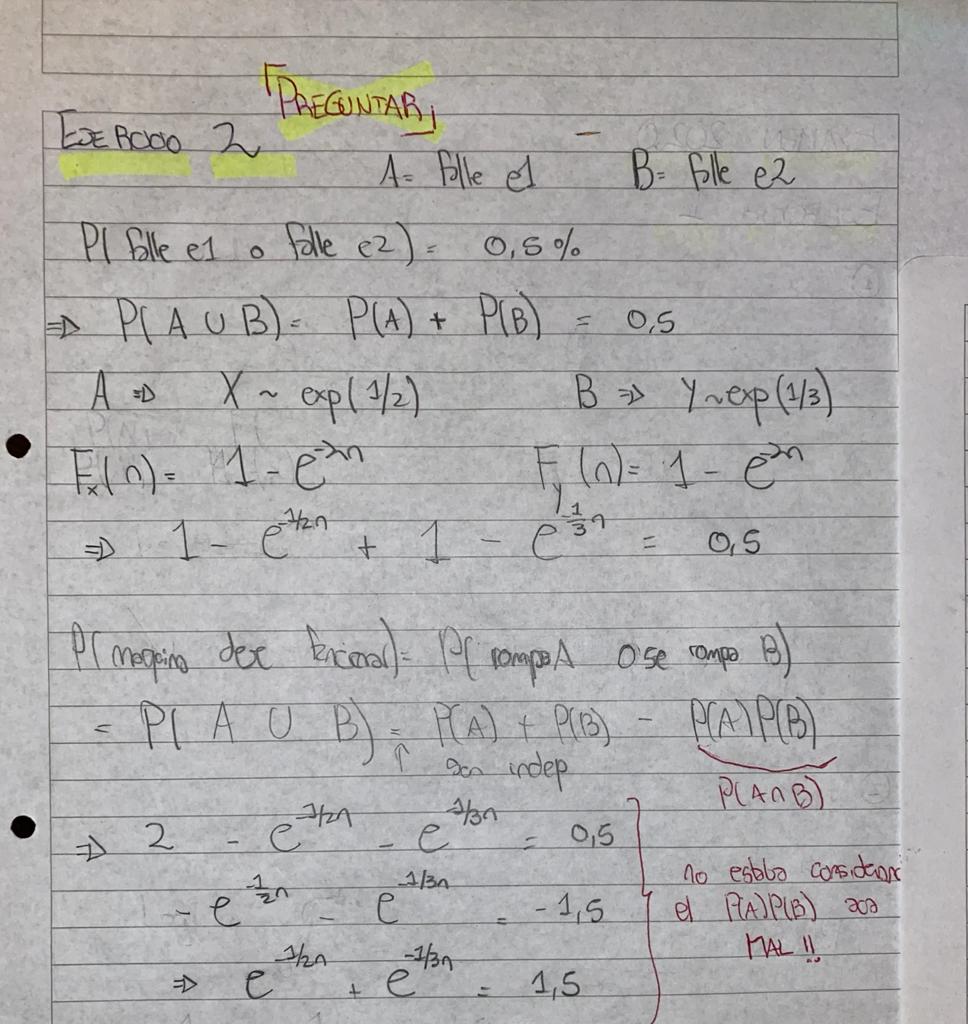 「PREGUNTAR」
EJERCICIO 2
A= falle e1 B= falle e2
P( falle e1 o falle e2 ) = 0,5 %
⇒ P( A ∪ B ) = P(A) + P(B) = 0,5
A ⇒ X ~ exp(1/2) B ⇒ Y ~ exp(1/3)
Fx(n) = 1 - e^-2n Fy(n) = 1 - e^-3n
⇒ 1 - e^-1/2n + 1 - e^-1/3n = 0,5
P( maquina deje funcionar) = P( rompa A o se rompa B)
= P( A ∪ B ) = P(A) + P(B) - P(A)P(B)
↑ son indep P(A∩B)
⇒ 2 - e^-1/2n - e^-1/3n = 0,5
- e^-1/2n - e^-1/3n = -1,5
⇒ e^-1/2n + e^-1/3n = 1,5
no estaba considerando
el P(A)P(B) acá
MAL !!